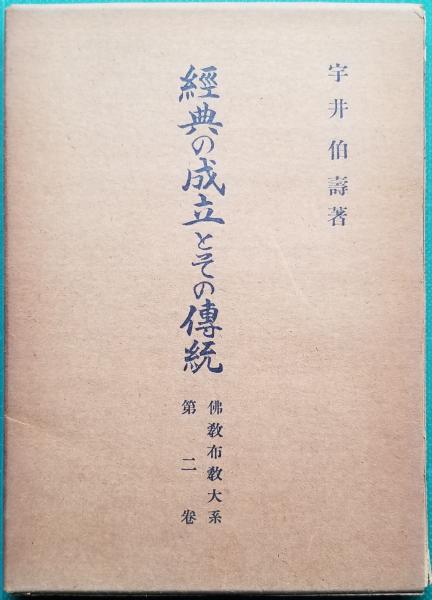 宇井伯壽著
經典の成立とその傳統
佛教布教大系
第二卷